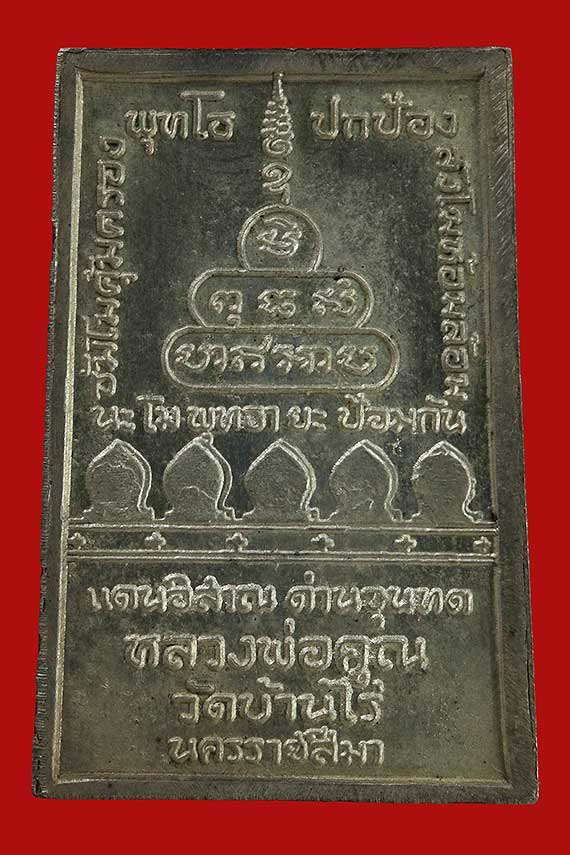 พุทโธ ปกป้อง
ธัมโมคุ้มครอง
สังโฆห้อมล้อม
นะ โม พุทธา ยะ ป้อมกัน
แดนอิสาณ ด่านขุนทด
หลวงพ่อคูณ
วัดบ้านไร่
นครราชสีมา